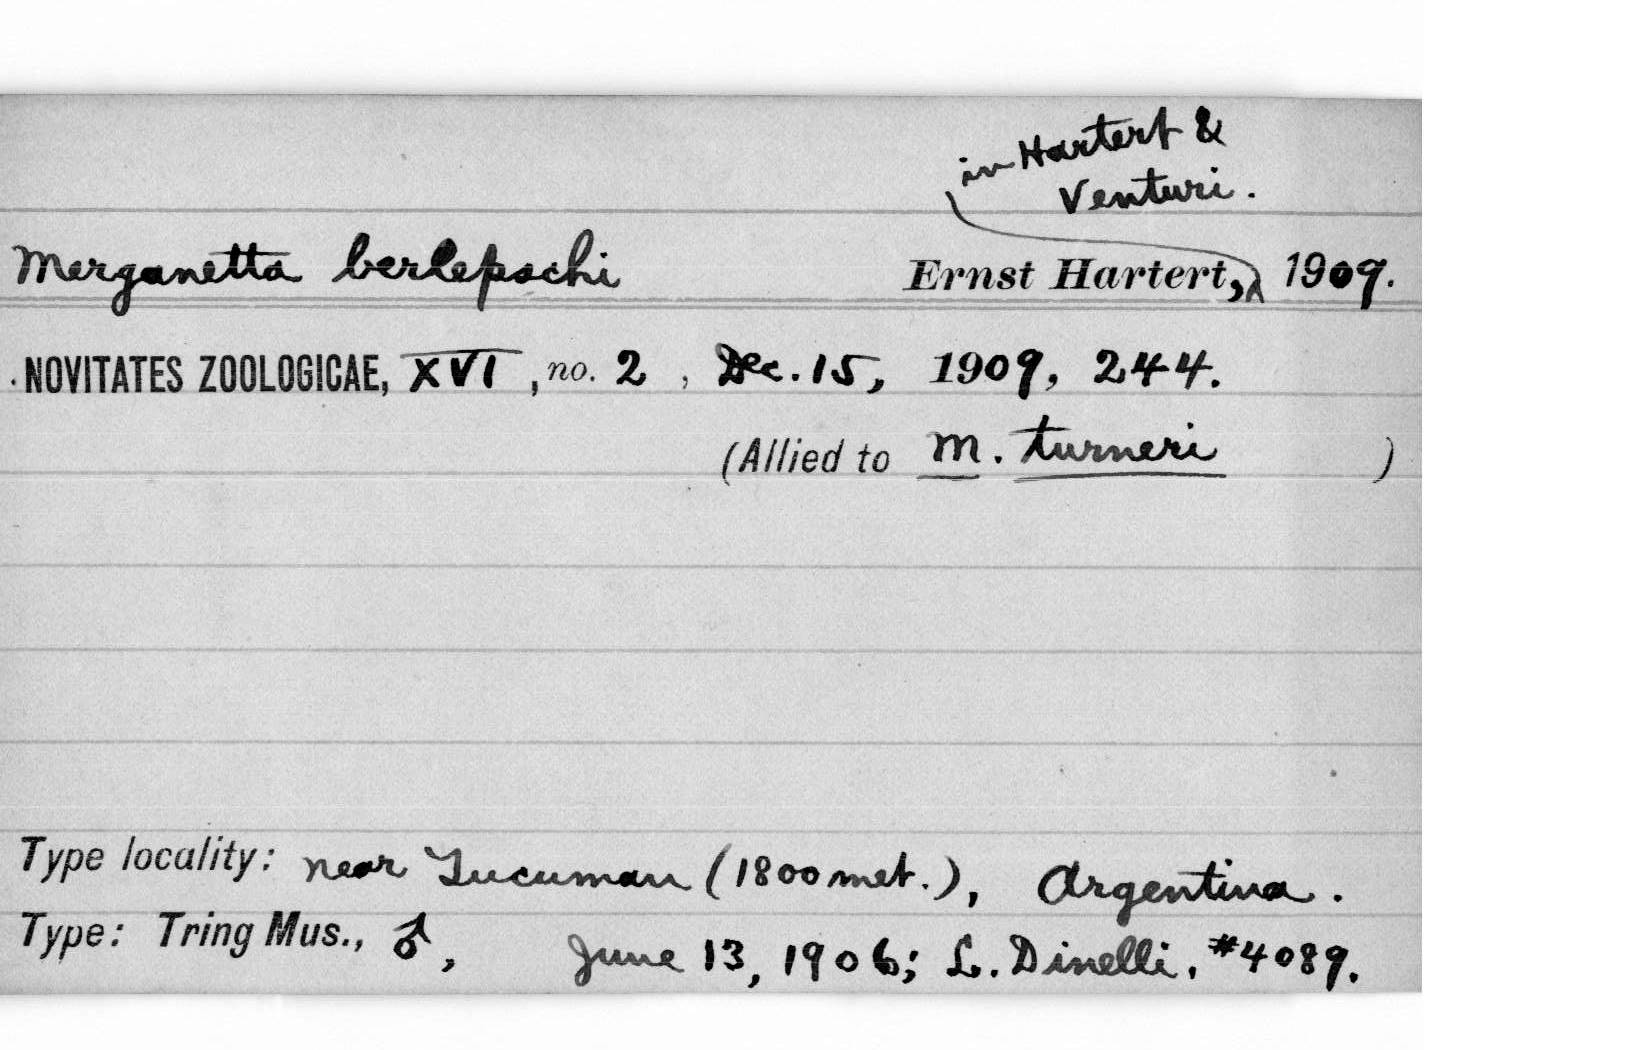 in Hartert &
Venturi.
Merganetta berlepschi Ernst Hartert, 1909.
NOVITATES ZOOLOGICAE, XVI, no. 2, Dec. 15, 1909, 244.
(Allied to M. turneri )
Type locality: near Tucuman (1800 met.), Argentina.
Type: Tring Mus., ♂, June 13, 1906; L. Dinelli, #4089.